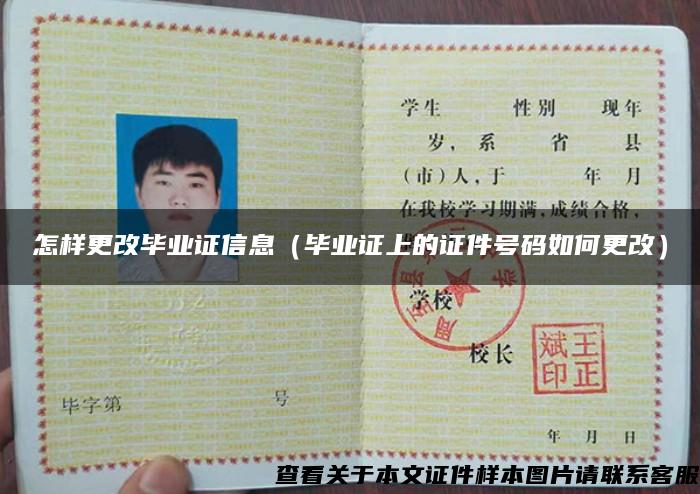 学生 性别 现年
岁，系 省 县
（市）人，于 年 月
在我校学习期满，成绩合格，
怎样更改毕业证信息（毕业证上的证件号码如何更改）
学校
校长
王正
斌印
毕字第 号
年 月 日
查看关于本文证件样本图片请联系客服